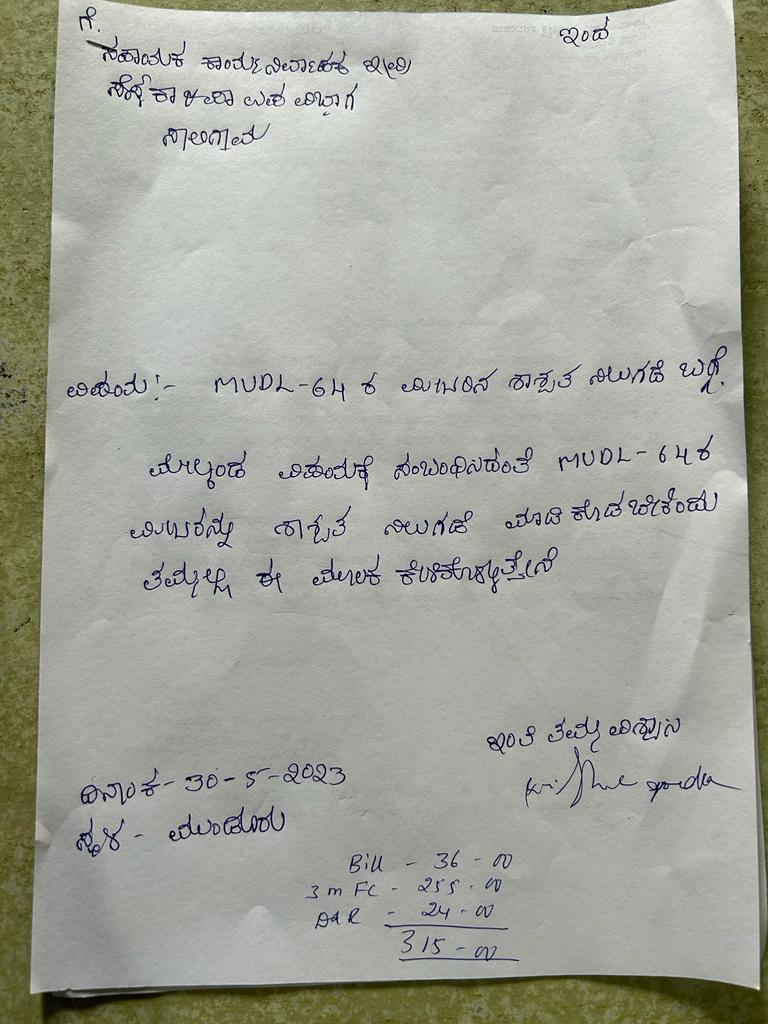 ಗೆ.
ಇಂದ
ಸಹಾಯಕ ಕಾರ್ಯನಿರ್ವಾಹಕ
ಉಪ ವಿಭಾಗ
ಸಾಲಿಗ್ರಾಮ
ವಿಷಯ:- MUDL-64 ರ ಮೀಟರಿನ ಶಾಶ್ವತ ನಿಲುಗಡೆ ಬಗ್ಗೆ.
ಮೇಲ್ಕಂಡ ವಿಷಯಕ್ಕೆ ಸಂಬಂಧಿಸಿದಂತೆ MUDL-64 ರ
ಮೀಟರನ್ನು ಶಾಶ್ವತ ನಿಲುಗಡೆ ಮಾಡಿ ಕೊಡಬೇಕೆಂದು
ತಮ್ಮಲ್ಲಿ ಈ ಮೂಲಕ ಕೇಳಿಕೊಳ್ಳುತ್ತೇನೆ
ಇಂತಿ ತಮ್ಮ ವಿಶ್ವಾಸಿ
ದಿನಾಂಕ- 30-5-2023
ಸ್ಥಳ - ಮುಂಡೂರು
Bill - 36-00
3 m FC - 255.00
D&R - 24-00
315-00